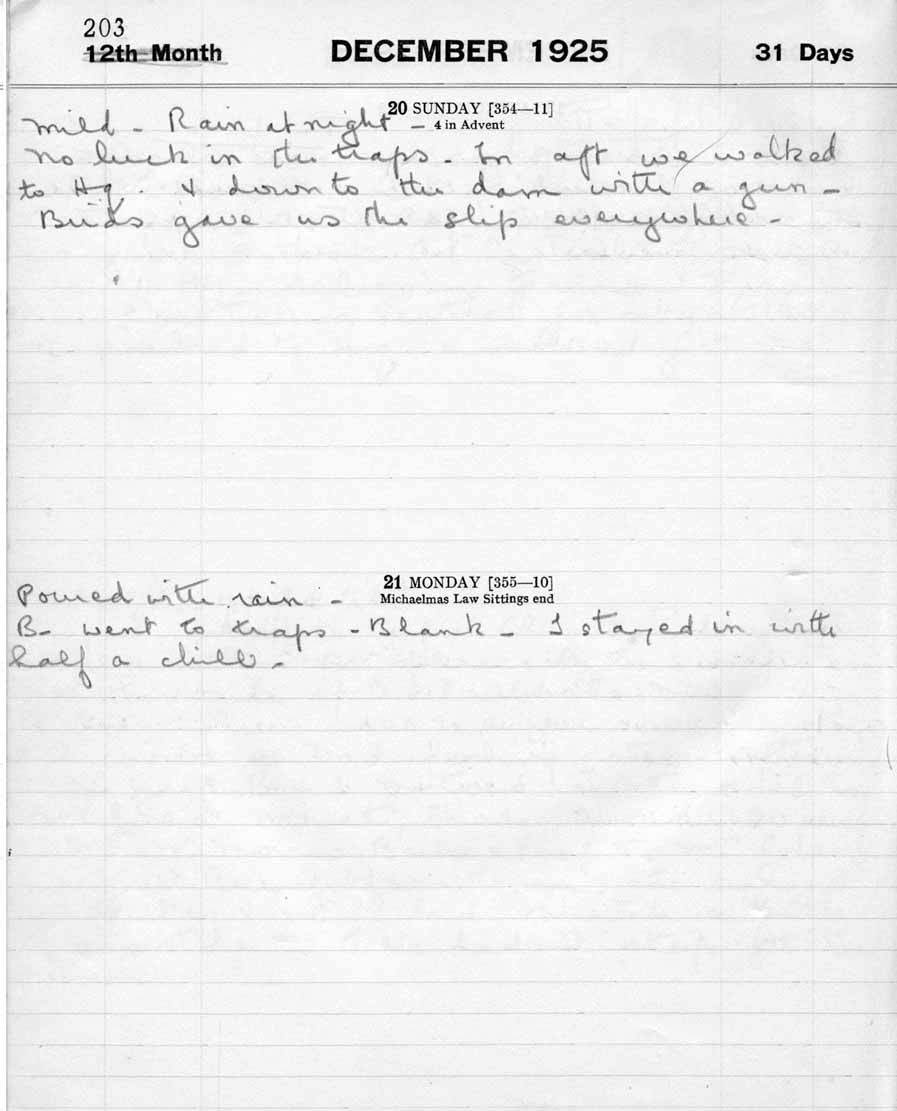 203
12th Month DECEMBER 1925 31 Days
20 SUNDAY [354—11]
Mild - Rain at night - 4 in Advent
No luck in the traps - In aft we walked
to Hq. & down to the dam with a gun -
Birds gave us the slip everywhere -
21 MONDAY [355—10]
Poured with rain - Michaelmas Law Sittings end
B- went to traps - Blank - I stayed in with
half a chill -